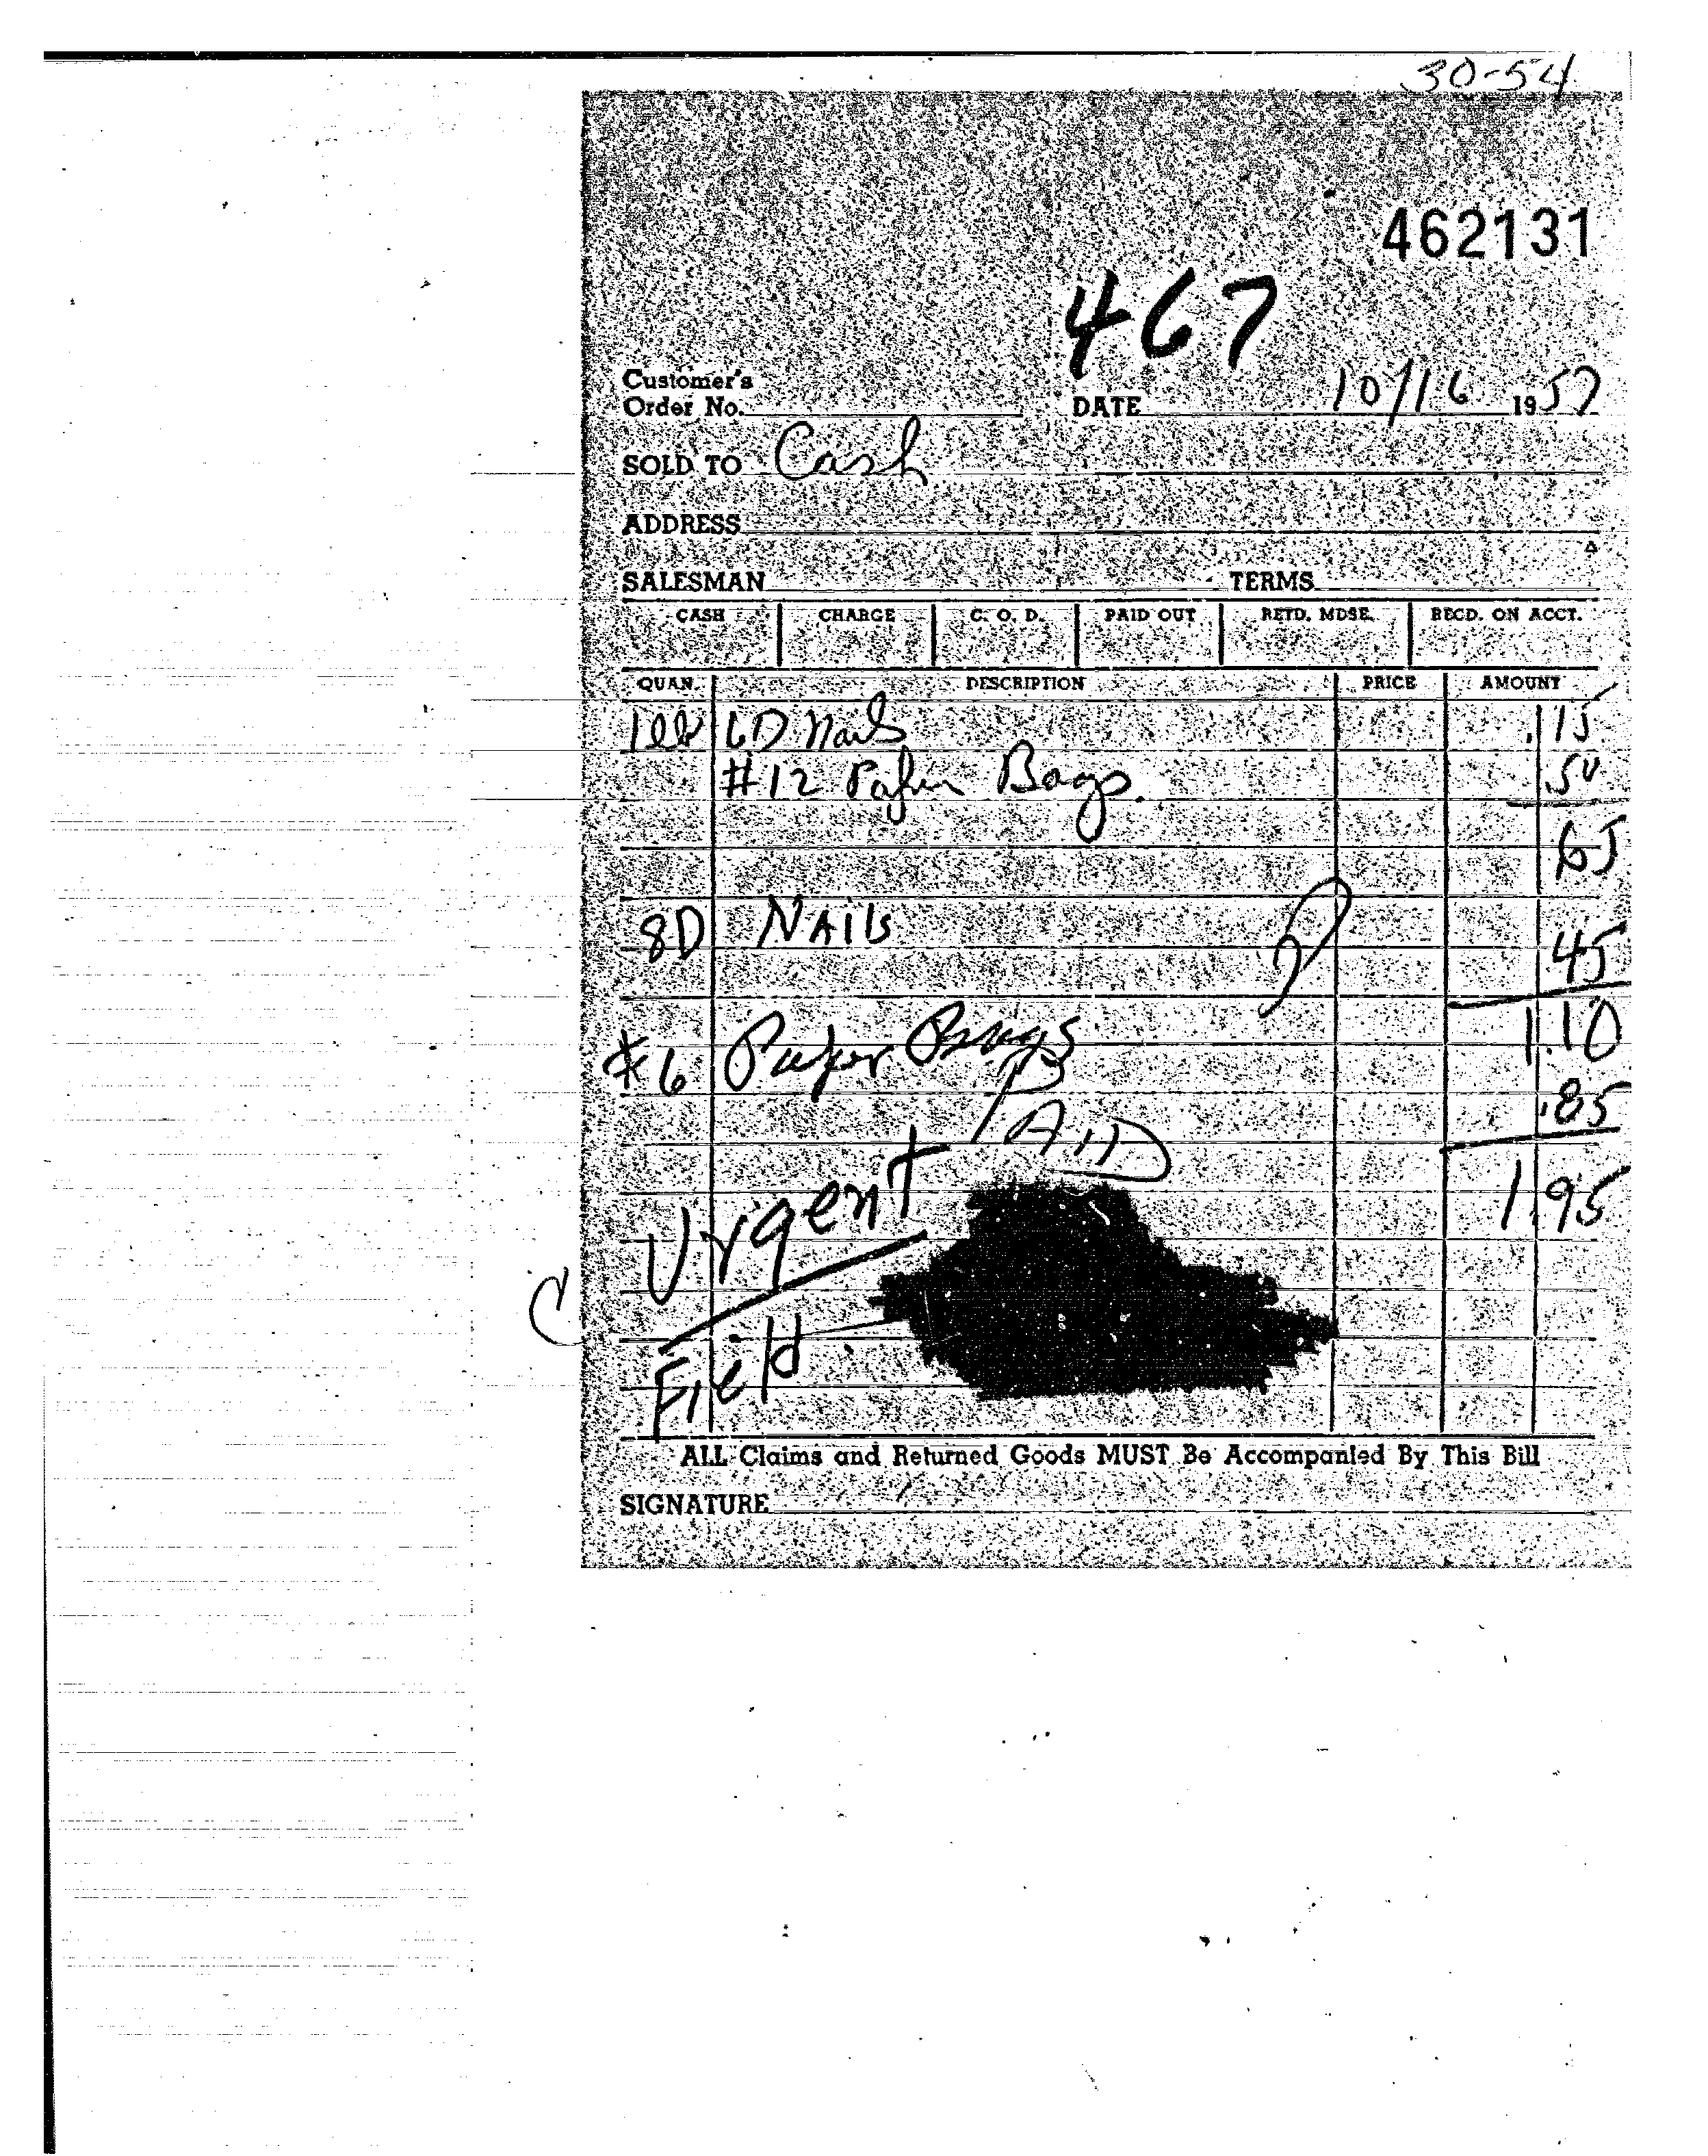 30-54
462131
467
Customer's
Order No. DATE 10/16 1957
SOLD TO Cash
ADDRESS
SALESMAN TERMS
CASH CHARGE C. O. D. PAID OUT RETD. MDSE. RECD. ON ACCT.
QUAN. DESCRIPTION PRICE AMOUNT
1 lb 6D Nails .15
#12 Paper Bags. .50
65
8D NAils 45
1.10
#6 Paper Bags .85
PAID
1.95
Urgent
Field
ALL Claims and Returned Goods MUST Be Accompanied By This Bill
SIGNATURE